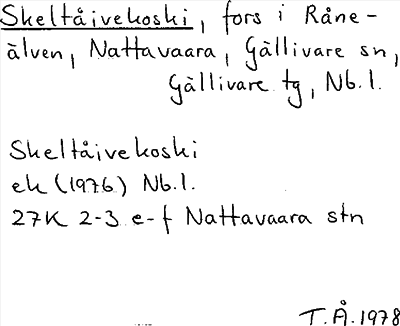 Skeltåivekoski, fors i Råne-
älven, Nattavaara, Gällivare sn,
Gällivare tg, Nb.l.
Skeltåivekoski
ek (1976) Nb.l.
27K 2-3 e-f Nattavaara stn
T.Å.1978